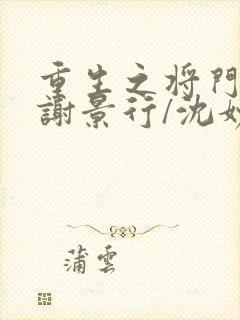 重生之将門
謝景行/沈妙
蒲雲